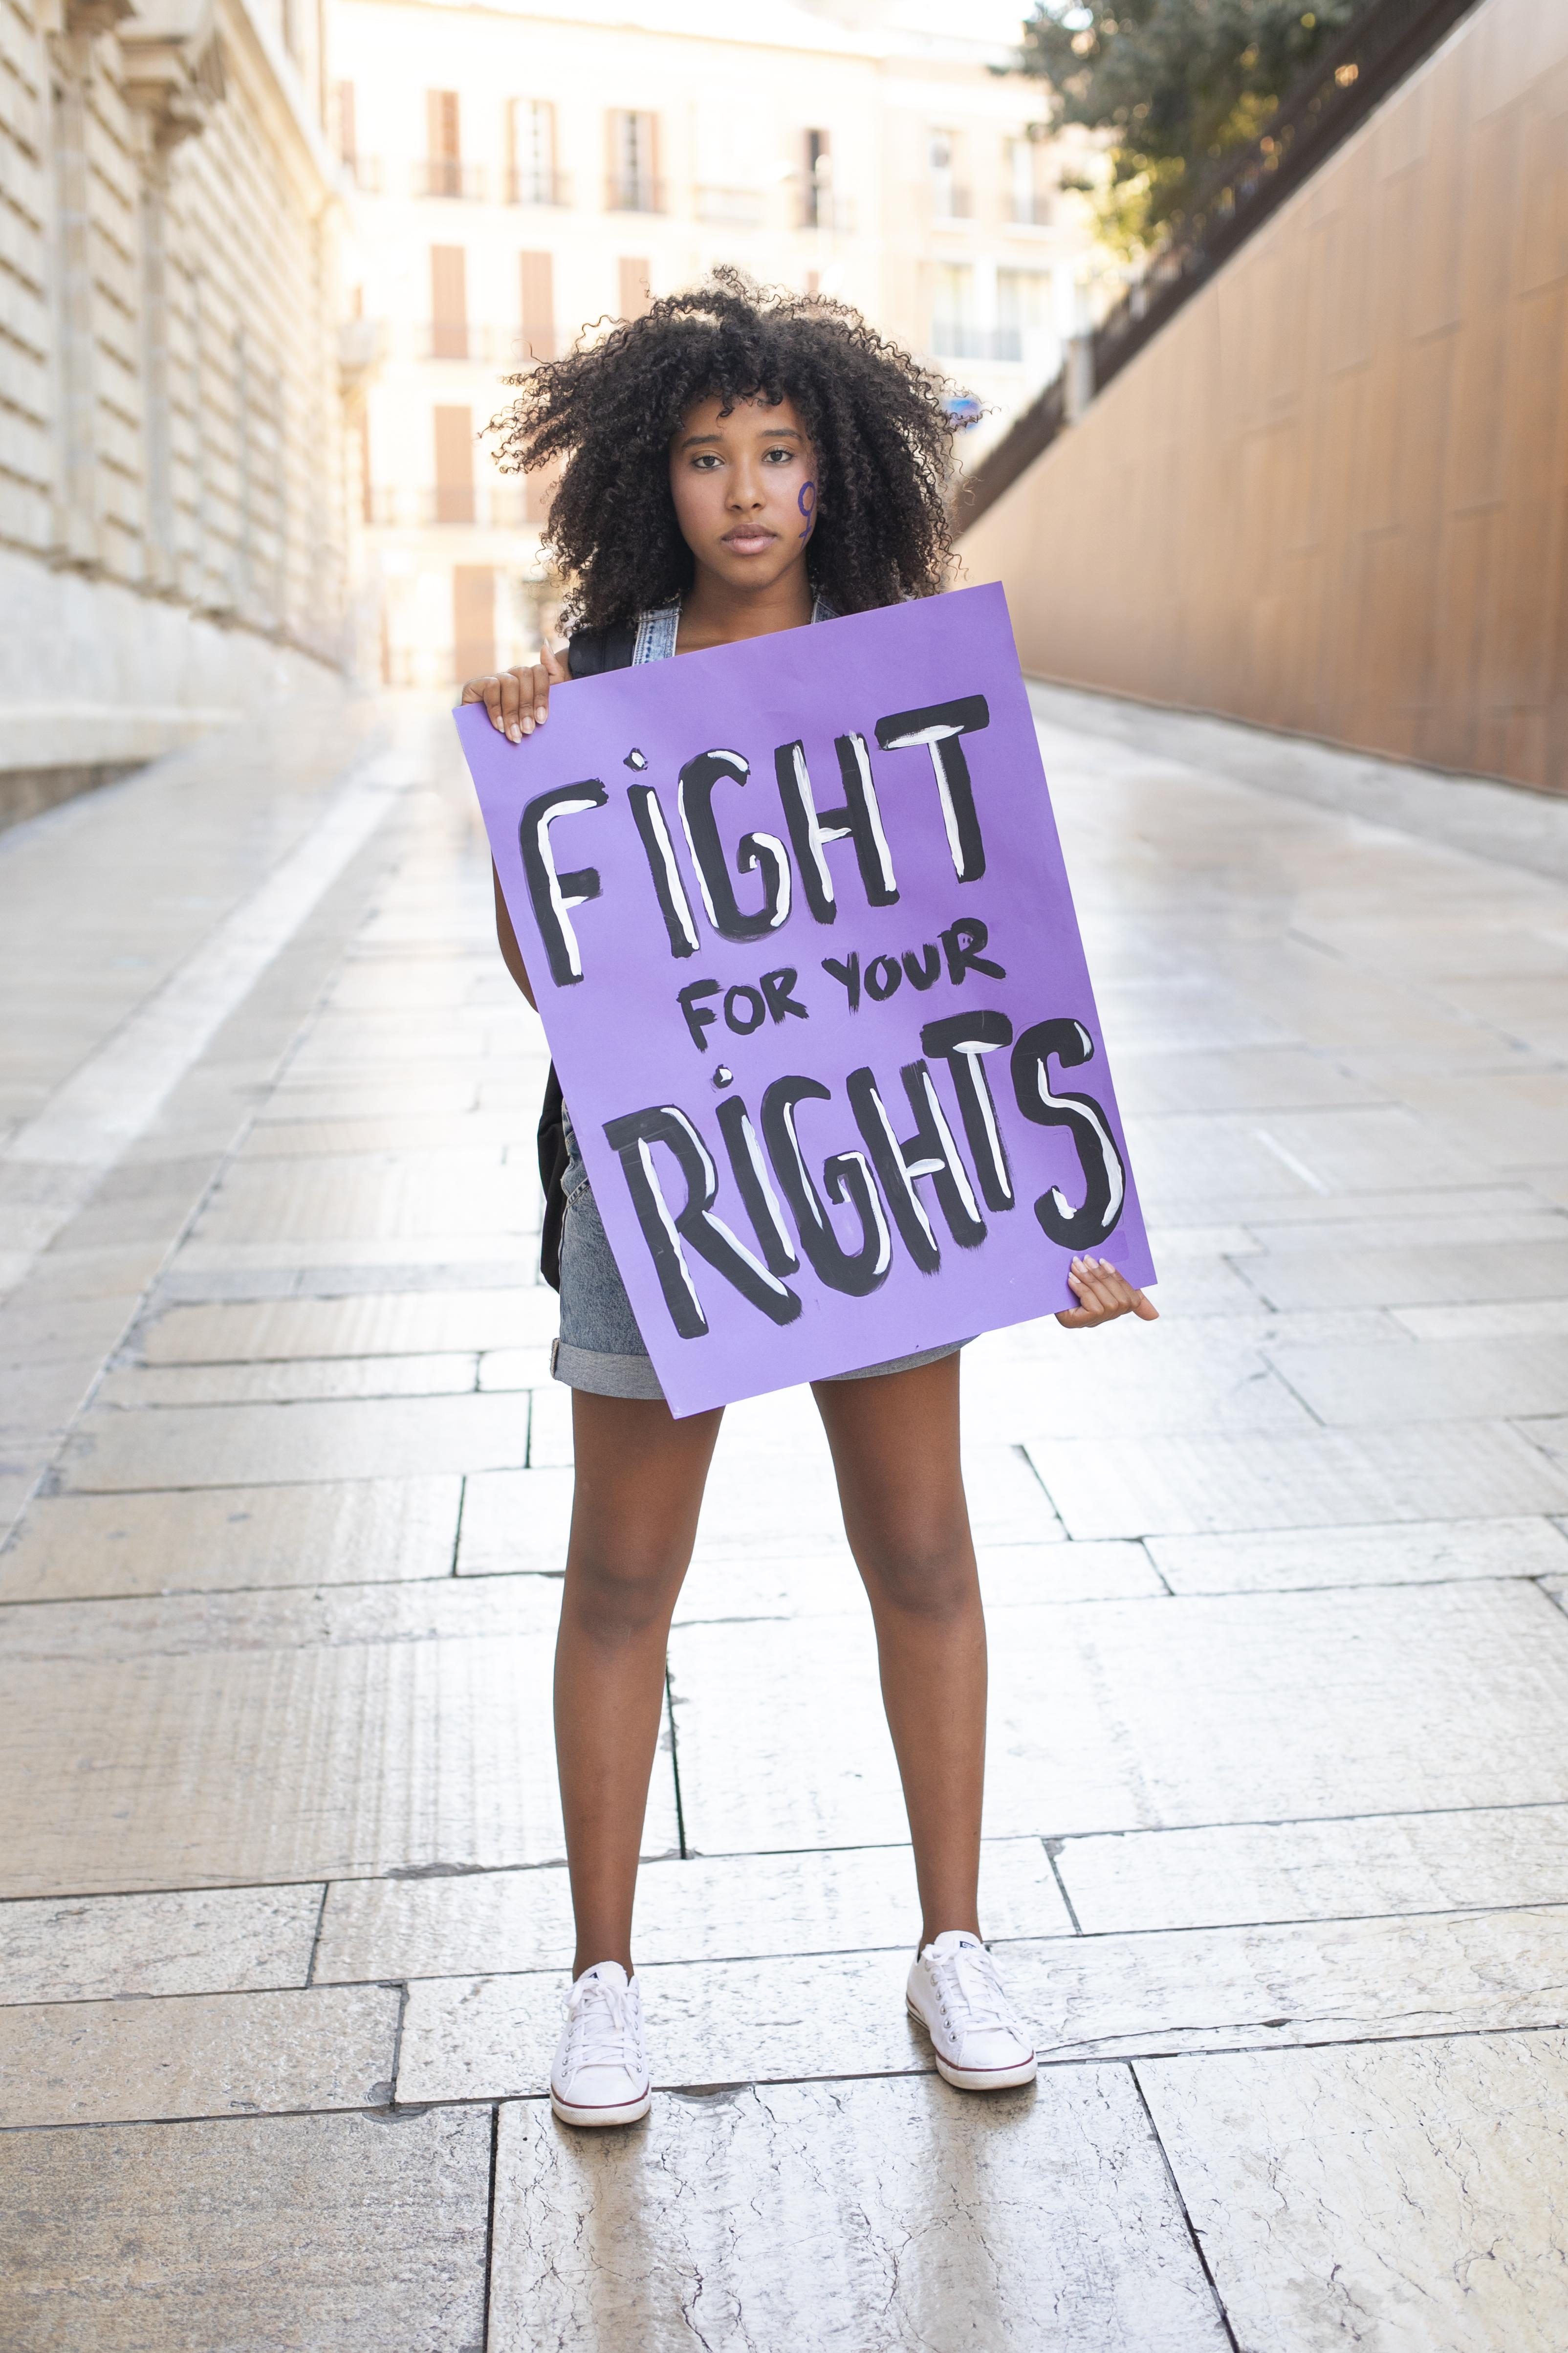 FiGHT
FOR YOUR
RiGHTS